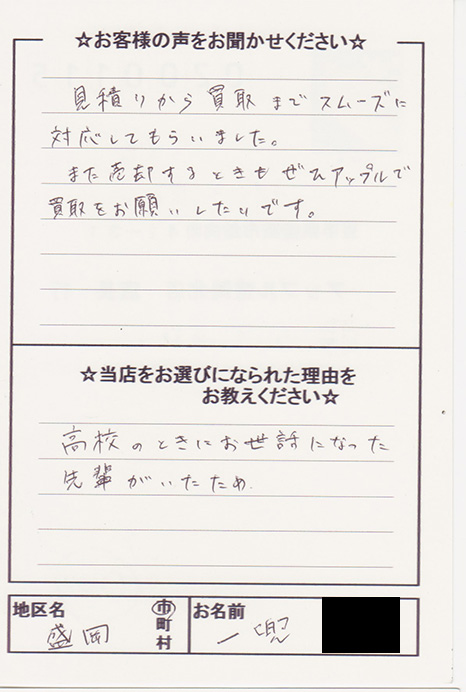 ☆お客様の声をお聞かせください☆
見積りから買取までスムーズに
対応してもらいました。
また売却するときもぜひアップルで
買取をお願いしたいです。
☆当店をお選びになられた理由を
お教えください☆
高校のときにお世話になった
先輩がいたため
地区名
盛岡
市
町
村
お名前
一